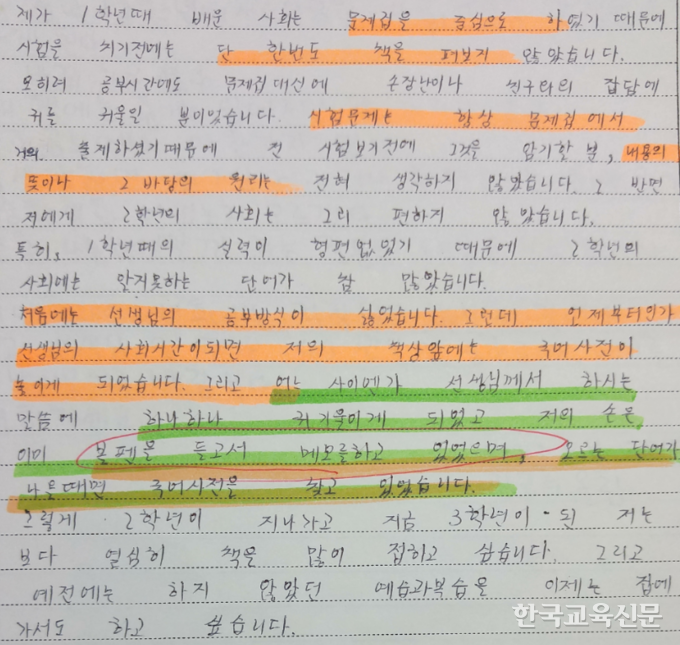 제가 1학년때 배운 사회는 문제집을 중심으로 하였기 때문에
시험을 치기전에는 단 한번도 책을 펴보지 않았습니다.
오히려 공부시간에도 문제집대신에 손장난이나 친구와의 잡담에
귀를 귀울일 뿐이었습니다. 시험문제는 항상 문제집에서
거의 출제하셨기때문에 전 시험보기전에 그것을 암기할 뿐, 내용의
뜻이나 그 바탕의 원리는 전혀 생각하지 않았습니다. 그 반면
저에게 2학년의 사회는 그리 편하지 않았습니다.
특히, 1학년때의 실력이 형편없었기 때문에 2학년의
사회에는 알지못하는 단어가 참 많았습니다.
처음에는 선생님의 공부방식이 싫었습니다. 그런데 언제부터인가
선생님의 사회시간이되면 저의 책상앞에는 국어사전이
놓이게 되었습니다. 그리고 어느 사이엔가 선생님께서 하시는
말씀에 하나하나 귀기울이게 되었고 저의 손은
이미 볼펜을 들고서 메모를하고 있었으며, 모르는 단어가
나올때면 국어사전을 찾고 있었습니다.
그렇게 2학년이 지나가고 지금 3학년이 된 저는
보다 열심히 책을 많이 접하고 싶습니다. 그리고
예전에는 하지 않았던 예습과복습을 이제는 집에
가서도 하고 싶습니다.
한국교육신문